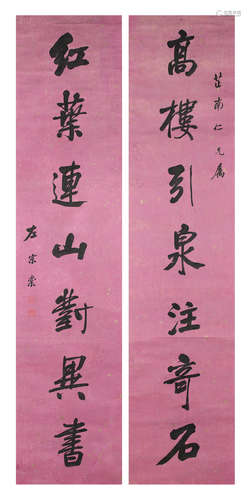 高樓引泉注奇石
芷南仁兄屬
紅葉連山對異書
左宗棠